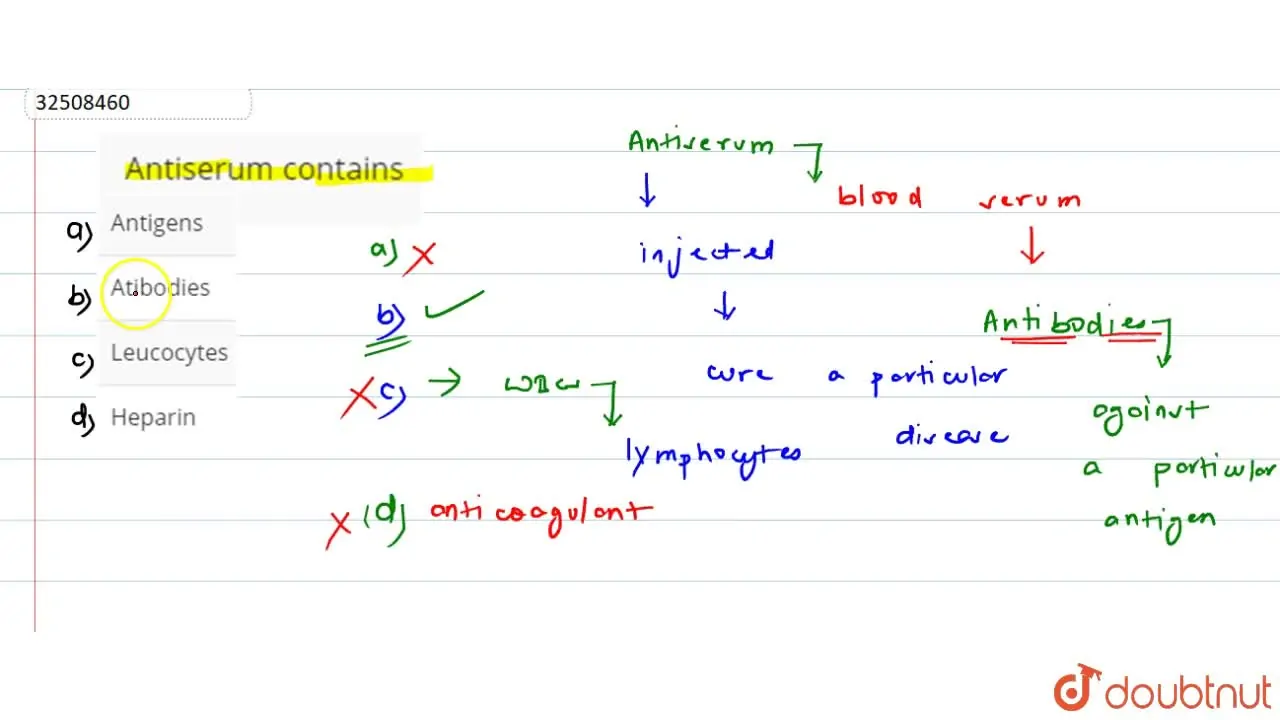 32508460
Antiserum contains
a) Antigens
b) Atibodies
c) Leucocytes
d) Heparin
a) X
b) ✓
X c) → WBC
lymphocytes
X (d) anticoagulant
Antiserum
blood serum
injected
Antibodies
cure a particular
disease
against
a particular
antigen
doubtnut